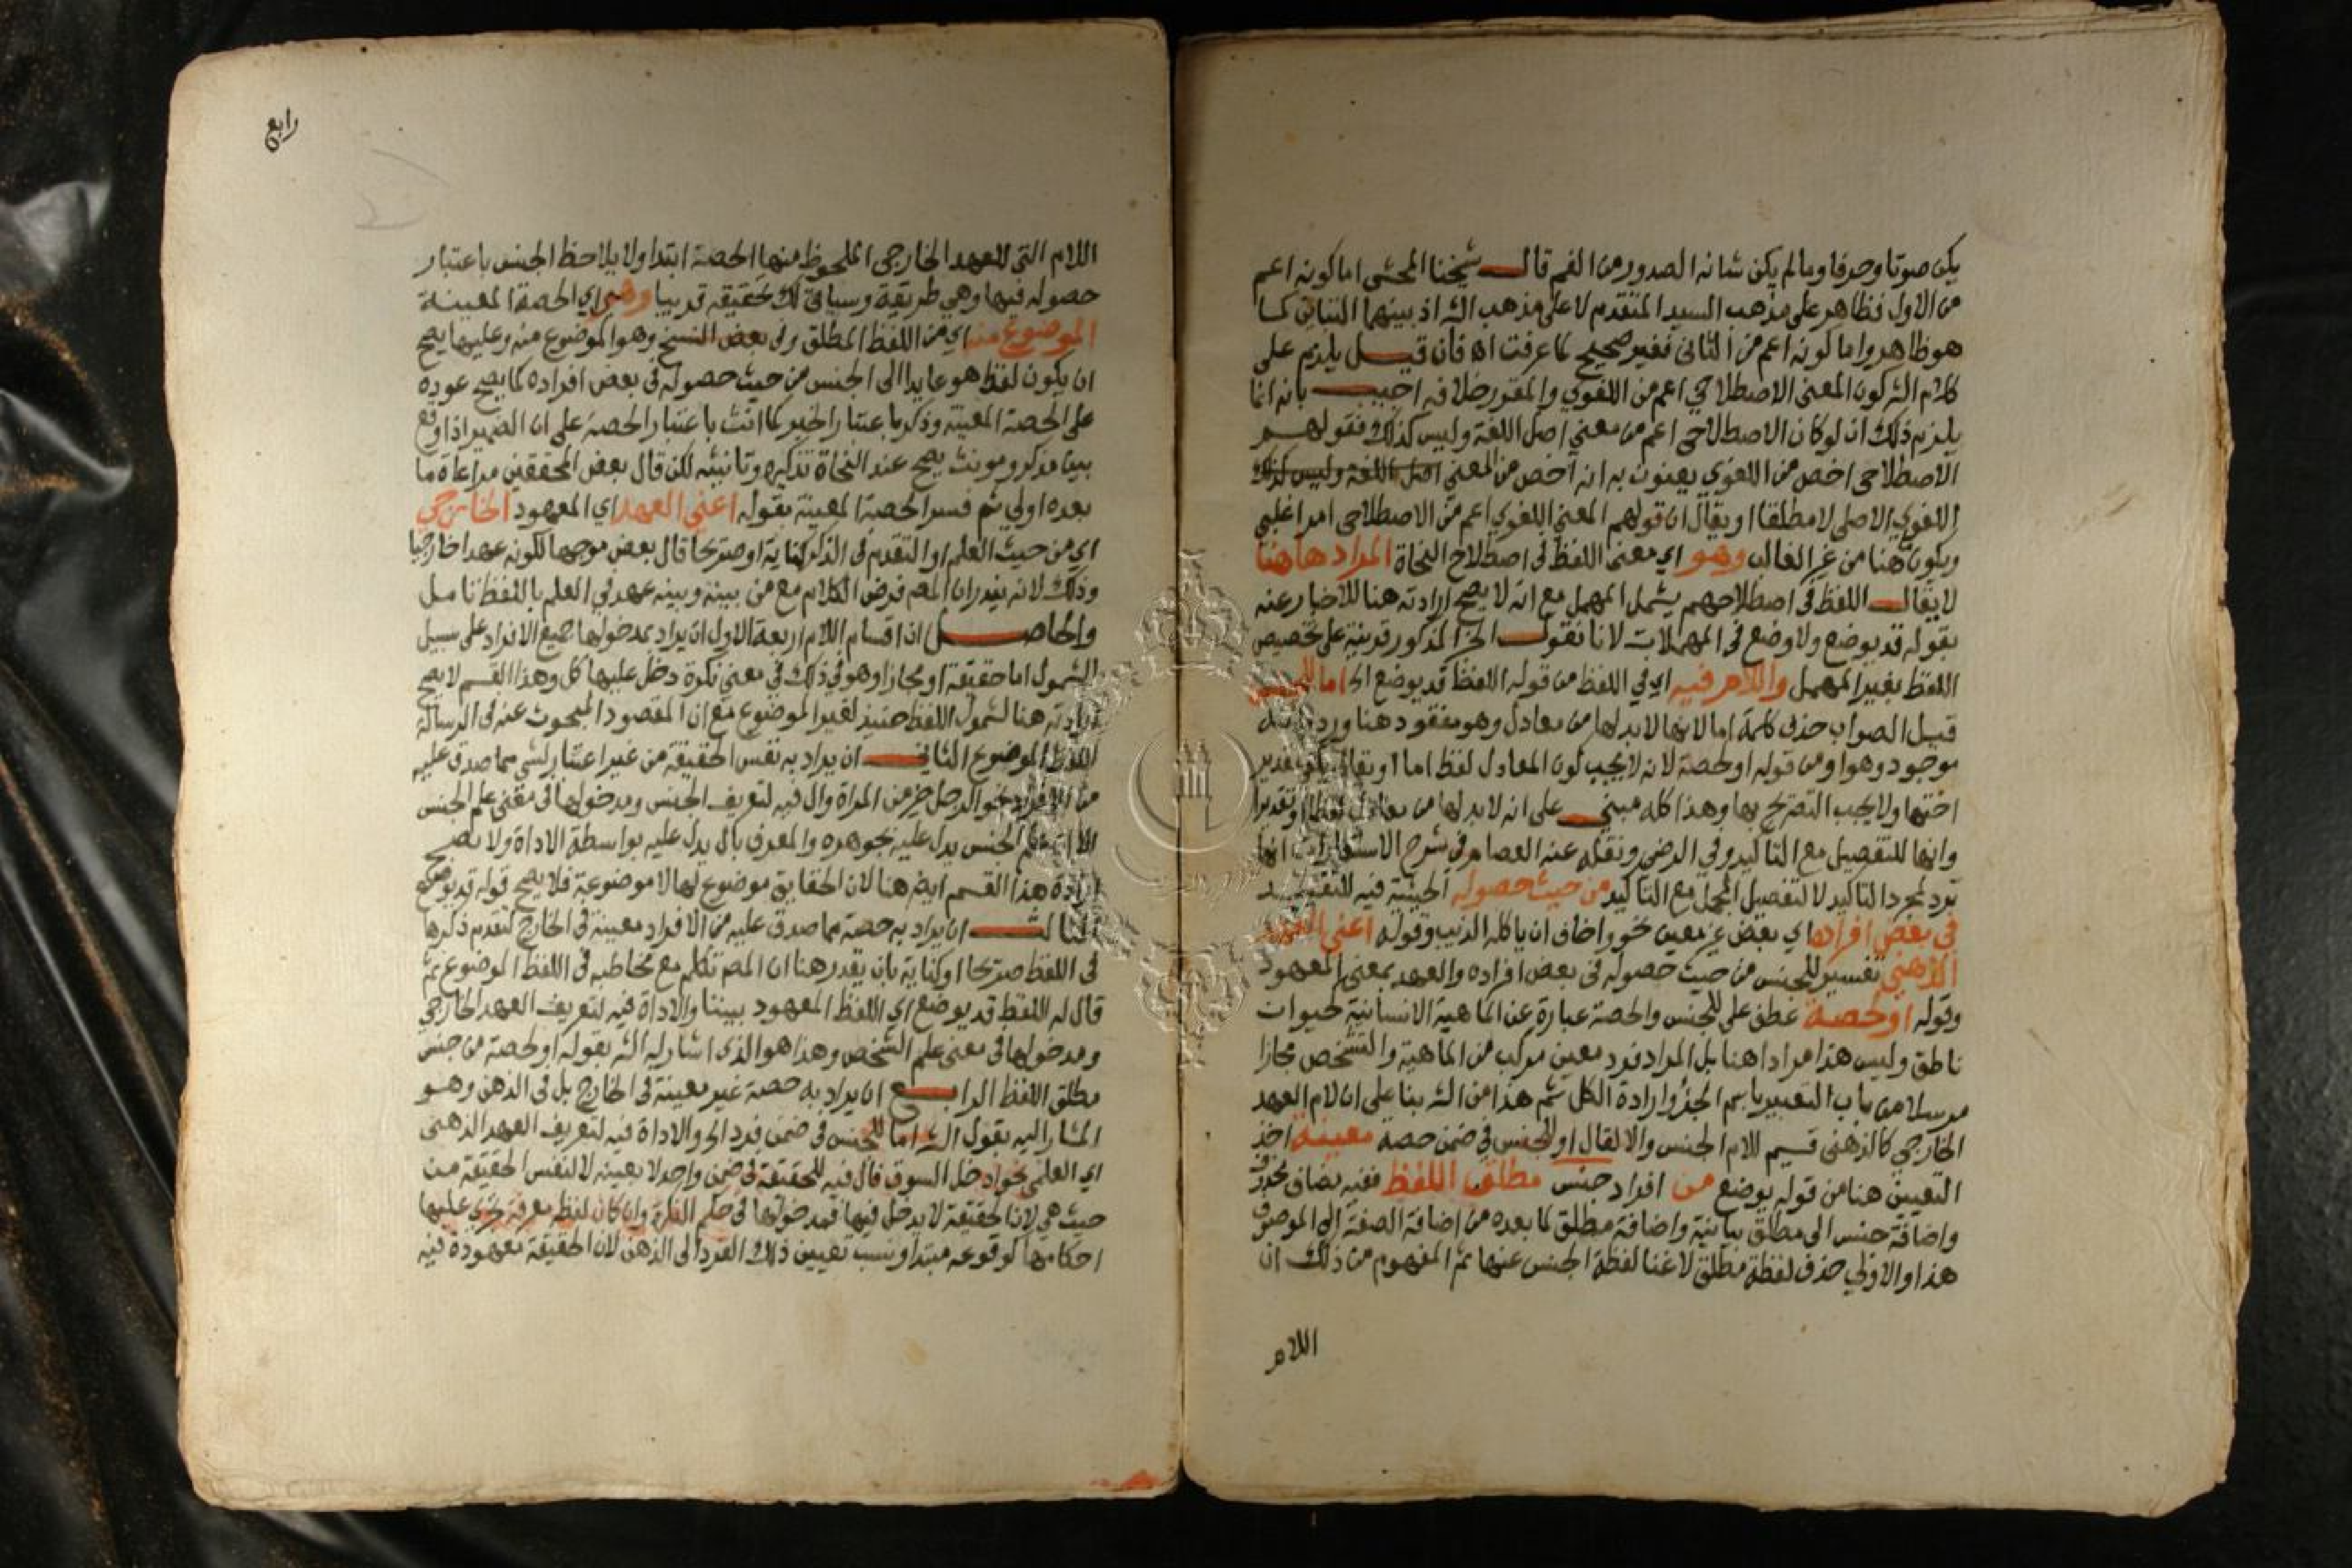 يكن صوتا وحرفا وما لم يكن شانه الصدور من الفم قال شيخنا المحشى اما كونه اعم
من الاول فظاهر على مذهب السيد المتقدم لا على مذهب الشر اذ بينهما التباين كما
هو ظاهر واما كونه اعم من الثانى فغير صحيح كما عرفت اه فان قيل يلزم على
كلام الشر كون المعنى الاصطلاحي اعم من اللغوي والمقرر خلافه اجيب بانه انما
يلزم ذلك ان لو كان الاصطلاحي اعم من معنى اصل اللغة وليس كذلك فقولهم
الاصطلاحى اخص من اللغوي يعنون به انه اخص من المعنى اصل اللغة وليس كذلك
اللغوي الاصلى لا مطلقا او يقال ان قولهم المعنى اللغوي اعم من الاصطلاحى امر اغلبي
ويكون هنا من غير الغالب وهو اي معنى اللفظ فى اصطلاح النحاة المراد هاهنا
لا يقال اللفظ فى اصطلاحهم يشمل المهمل مع انه لا يصح ارادته هنا للاخبار عنه
بقوله قد يوضع ولا وضع فى المهملات لانا نقول الخبر المذكور قرينة على تخصيص
اللفظ بغير المهمل واللام فيه اي في اللفظ من قوله اللفظ قد يوضع الخ اما للجنس
قيل الصواب حذف كلمة اما لانها لابد لها من معادل وهو مفقود هنا ورد بانه
موجود وهو او من قوله او لحصة لانه لا يجب كون المعادل لفظ اما او يقال تقدير
اختها ولا يجب التصريح بها وهذا كله مبني على انه لابد لها من معادل لفظا او تقديرا
وانها للتفصيل مع التاكيد وفي الرضى ونقله عنه العصام فى شرح الاستعارات انها
ترد لمجرد التاكيد لا لتفصيل المجمل مع التاكيد من حيث حصوله الحيثية فيه للتقييد
في بعض افراده اي بعض غير معين نحو واخاف ان ياكله الذيب وقوله اعني العهد
الذهني تفسير للجنس من حيث حصوله فى بعض افراده والعهد بمعنى المعهود
وقوله او لحصة عطف على للجنس والحصة عبارة عن الماهية الانسانية كحيوان
ناطق وليس هذا مرادا هنا بل المراد فرد معين مركب من الماهية والتشخص مجازا
مرسلا من باب التعبير باسم الجزؤ وارادة الكل ثم هذا من الشر بنا على ان لام العهد
الخارجي كالذهنى قسيم للام الجنس والا لقال او للجنس في ضمن حصة معينة اخذ
التعيين هنا من قوله يوضع من افراد جنس مطلق اللفظ ففيه مضاف محذوف
واضافة جنس الى مطلق بيانية واضافة مطلق لما بعده من اضافة الصفة الى الموصوف
هذا والاولي حذف لفظة مطلق لاغنا لفظة الجنس عنها ثم المفهوم من ذلك ان
اللام
رابع
اللام التى للعهد الخارجى الملحوظ منها الحصة ابتدا ولا يلاحظ الجنس باعتبار
حصوله فيها وهي طريقة وسياتى لك تحقيقه قريبا وهي اي الحصة المعينة
الموضوع منه اي من اللفظ المطلق وفى بعض النسخ وهو الموضوع منه وعليها يصح
ان يكون لفظ هو عايدا الى الجنس من حيث حصوله فى بعض افراده كما يصح عوده
على الحصة المعينة وذكر باعتبار الخبر كما انث باعتبار الحصة على ان الضمير اذا وقع
بين مذكر ومونث يصح عند النحاة تذكيره وتانيثه لكن قال بعض المحققين مراعاة ما
بعده اولي ثم فسر الحصة المعينة بقوله اعني العهد اي المعهود الخارجي
اي من حيث العلم او التقدم فى الذكر كناية او صريحا قال بعض موجها لكونه عهدا خارجيا
وذلك لانه يقدر ان المص فرض الكلام مع من بينه وبينه عهد في العلم باللفظ تامل
والحاصل ان اقسام اللام اربعة الاول ان يراد بمدخولها جميع الافراد على سبيل
الشمول اما حقيقة او مجازا وهو في ذلك في معنى نكرة دخل عليها كل وهذا القسم لا يصح
ارادته هنا لشمول اللفظ حينيذ لغير الموضوع مع ان المقصود المبحوث عنه فى الرسالة
اللفظ الموضوع الثاني ان يراد به نفس الحقيقة من غير اعتبار لشى مما صدق عليه
من الافراد نحو الرجل خير من المراة وال فيه لتعريف الجنس ومدخولها فى معنى علم الجنس
الا ان علم الجنس يدل عليه بجوهره والمعرف بال يدل عليه بواسطة الاداة ولا يصح
ارادة هذا القسم ايضا هنا لان الحقايق موضوع لها لا موضوعة فلا يصح قوله قد يوضع
الثالث ان يراد به حصة مما صدق عليه من الافراد معينة فى الخارج لتقدم ذكرها
فى اللفظ صريحا او كناية بان يقدر هنا ان المص تكلم مع مخاطبه فى اللفظ الموضوع ثم
قال له اللفظ قد يوضع اي اللفظ المعهود بيننا والاداة فيه لتعريف العهد الخارجي
ومدخولها فى معنى علم الشخص وهذا هو الذى اشار له الشر بقوله او لحصة من جنس
مطلق اللفظ الرابع ان يراد به حصة غير معينة فى الخارج بل فى الذهن وهو
المشار اليه بقول الشر اما للجنس فى ضمن فرد الخ والاداة فيه لتعريف العهد الذهنى
اي العلمى نحو ادخل السوق فال فيه للحقيقة فى ضمن واحد لا بعينه لا لنفس الحقيقة من
حيث هي لان الحقيقة لا يدخل فيها فمدخولها فى حكم النكرة وان كان لفظه معرفة تجري عليها
احكامها كوقوعه مبتدا ونسب تعيين ذلك الفرد الى الذهن لان الحقيقة معهودة فيه